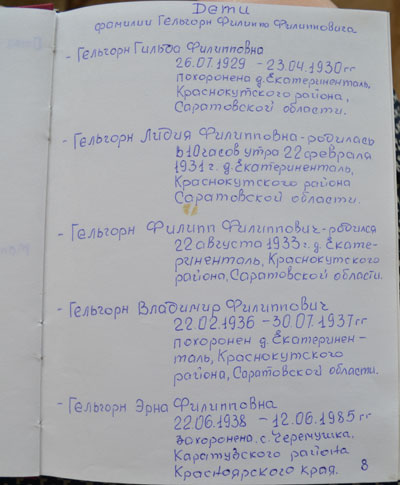 Дети
фамилии Гельгорн Филиппо Филипповича
- Гельгорн Гильда Филипповна
26.07.1929 - 23.04.1930 гг
похоронена д. Екатериненталь,
Краснокутского района,
Саратовской области.
- Гельгорн Лидия Филипповна - родилась
в 10 часов утра 22 февраля
1931 г. д. Екатериненталь,
Краснокутского района
Саратовской области.
- Гельгорн Филипп Филиппович - родился
22 августа 1933 г. д. Екате-
риненталь, Краснокутского
района, Саратовской области.
- Гельгорн Владимир Филиппович
22.02.1936 - 30.07.1937 гг
похоронен д. Екатеринен-
таль, Краснокутского
района, Саратовской области.
- Гельгорн Эрна Филипповна
22.06.1938 - 12.06.1985 гг
захоронена, с. Черемушка,
Каратузского района
Красноярского края.
8